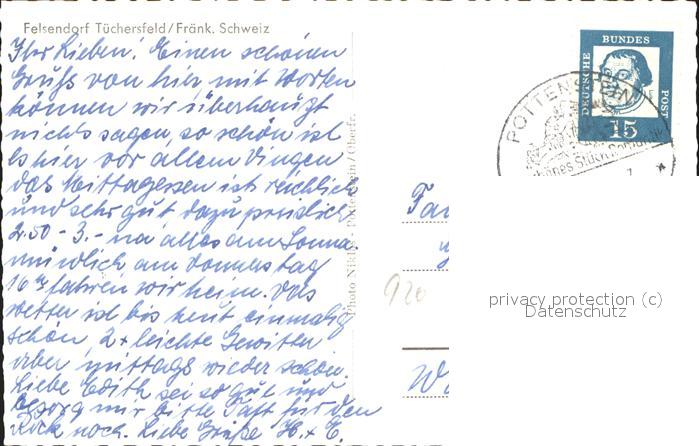 Felsendorf Tüchersfeld/Fränk. Schweiz
Ihr Lieben! Einen schönen
Gruß von hier mit Worten
können wir überhaupt
nichts sagen so schön ist
es hier vor allem Dingen
das Mittagessen ist reichlich
und sehr gut dazu preislich
2.50 - 3.- na alles am Sonna
mündlich am Donnerstag
16 fahren wir heim. Das
Wetter ist bis heut einmalig
schön, 2 x leichte Gewitter
aber, mittags wieder schön.
Liebe Edith sei so gut und
besorg mir bitte Taft für den
Rock noch. Liebe Grüße H. + E.
Photo Nikl, Pottenstein/Oberfr.
DEUTSCHE
BUNDES
POST
15
POTTENSTEIN
920
privacy protection (c)
Datenschutz